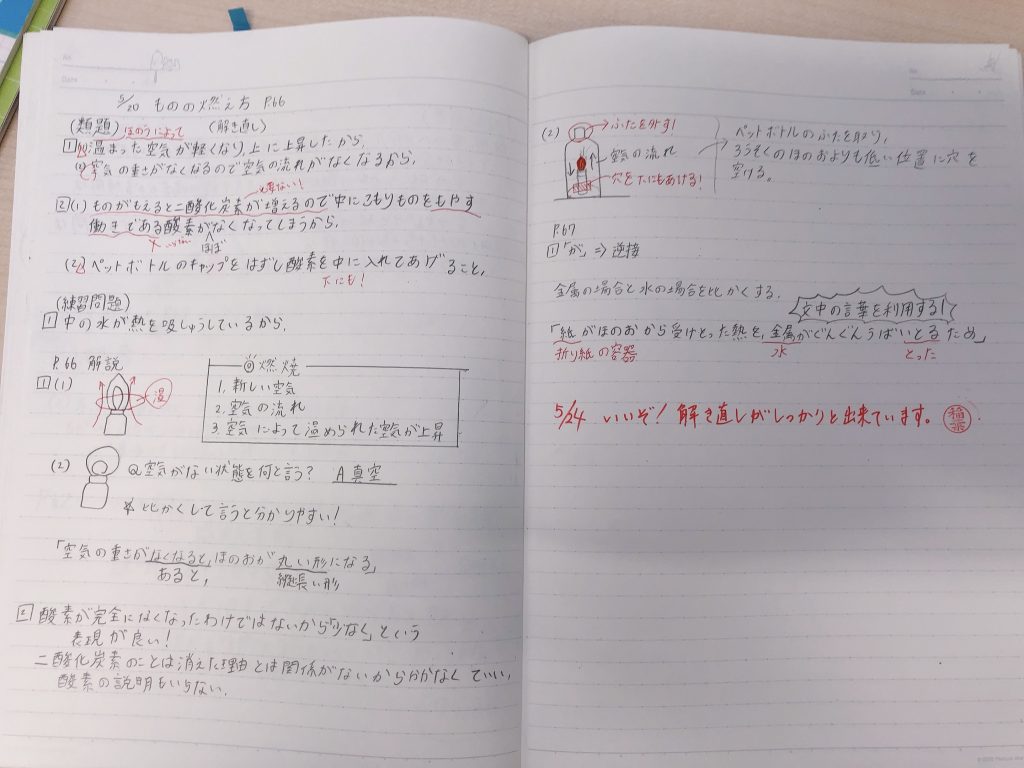 No.
Date
5/20 ものの燃え方 P.66
(類題) ほのうによって (解き直し)
1 (1) 温まった空気が軽くなり、上に上昇したから。
(2) 空気の重さがなくなるので空気の流れがなくなるから。
いらない!
2 (1) ものがもえると二酸化炭素が増えるので中にこもりものをもやす
働きである酸素がなくなってしまうから。
ほぼ
(2) ペットボトルのキャップをはずし酸素を中に入れてあげること。
下にも!
(練習問題)
1 中の水が熱を吸しゅうしているから。
P.66 解説
1 (1)
温
◎燃焼
1. 新しい空気
2. 空気の流れ
3. 空気によって温められた空気が上昇
(2)
Q 空気がない状態を何と言う? A 真空
※ 比かくして言うと分かりやすい!
「空気の重さがなくなると、ほのおが丸い形になる」
あると、 縦長い形
2 酸素が完全になくなったわけではないから「少なく」という
表現が良い!
二酸化炭素のことは消えた理由とは関係がないからかがなくていい。
酸素の説明もいらない。
No.
Date
(2)
ふたを外す!
空気の流れ
穴を下にもあける!
ペットボトルのふたを取り、
ろうそくのほのおよりも低い位置に穴を
空ける。
P.67
1 「が」⇒逆接
金属の場合と水の場合を比かくする。
文中の言葉を利用する!
「紙がほのおから受けとった熱を、金属がぐんぐんうばいとるため」
折り紙の容器 水 とった
5/24 いいぞ! 解き直しがしっかりと出来ています。